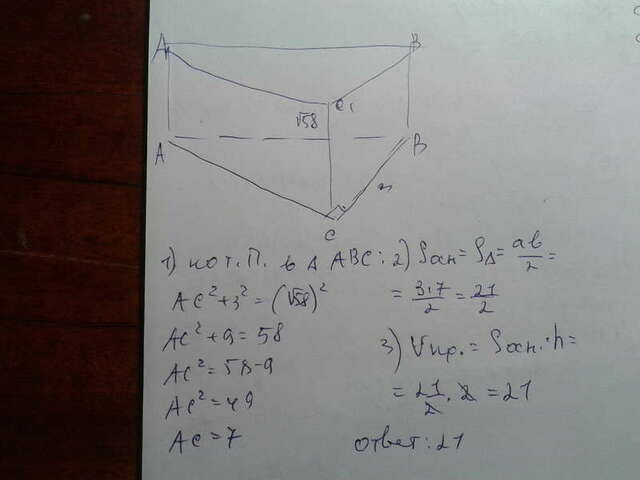 A B
C₁
√58
A B
3
C
1) по т.П. в Δ ABC:
AC² + 3² = (√58)²
AC² + 9 = 58
AC² = 58-9
AC² = 49
AC = 7
2) Sосн = SΔ = ab/2 =
= 3·7/2 = 21/2
3) Vпр. = Sосн.·h =
= 21/2 · 2 = 21
ответ: 21